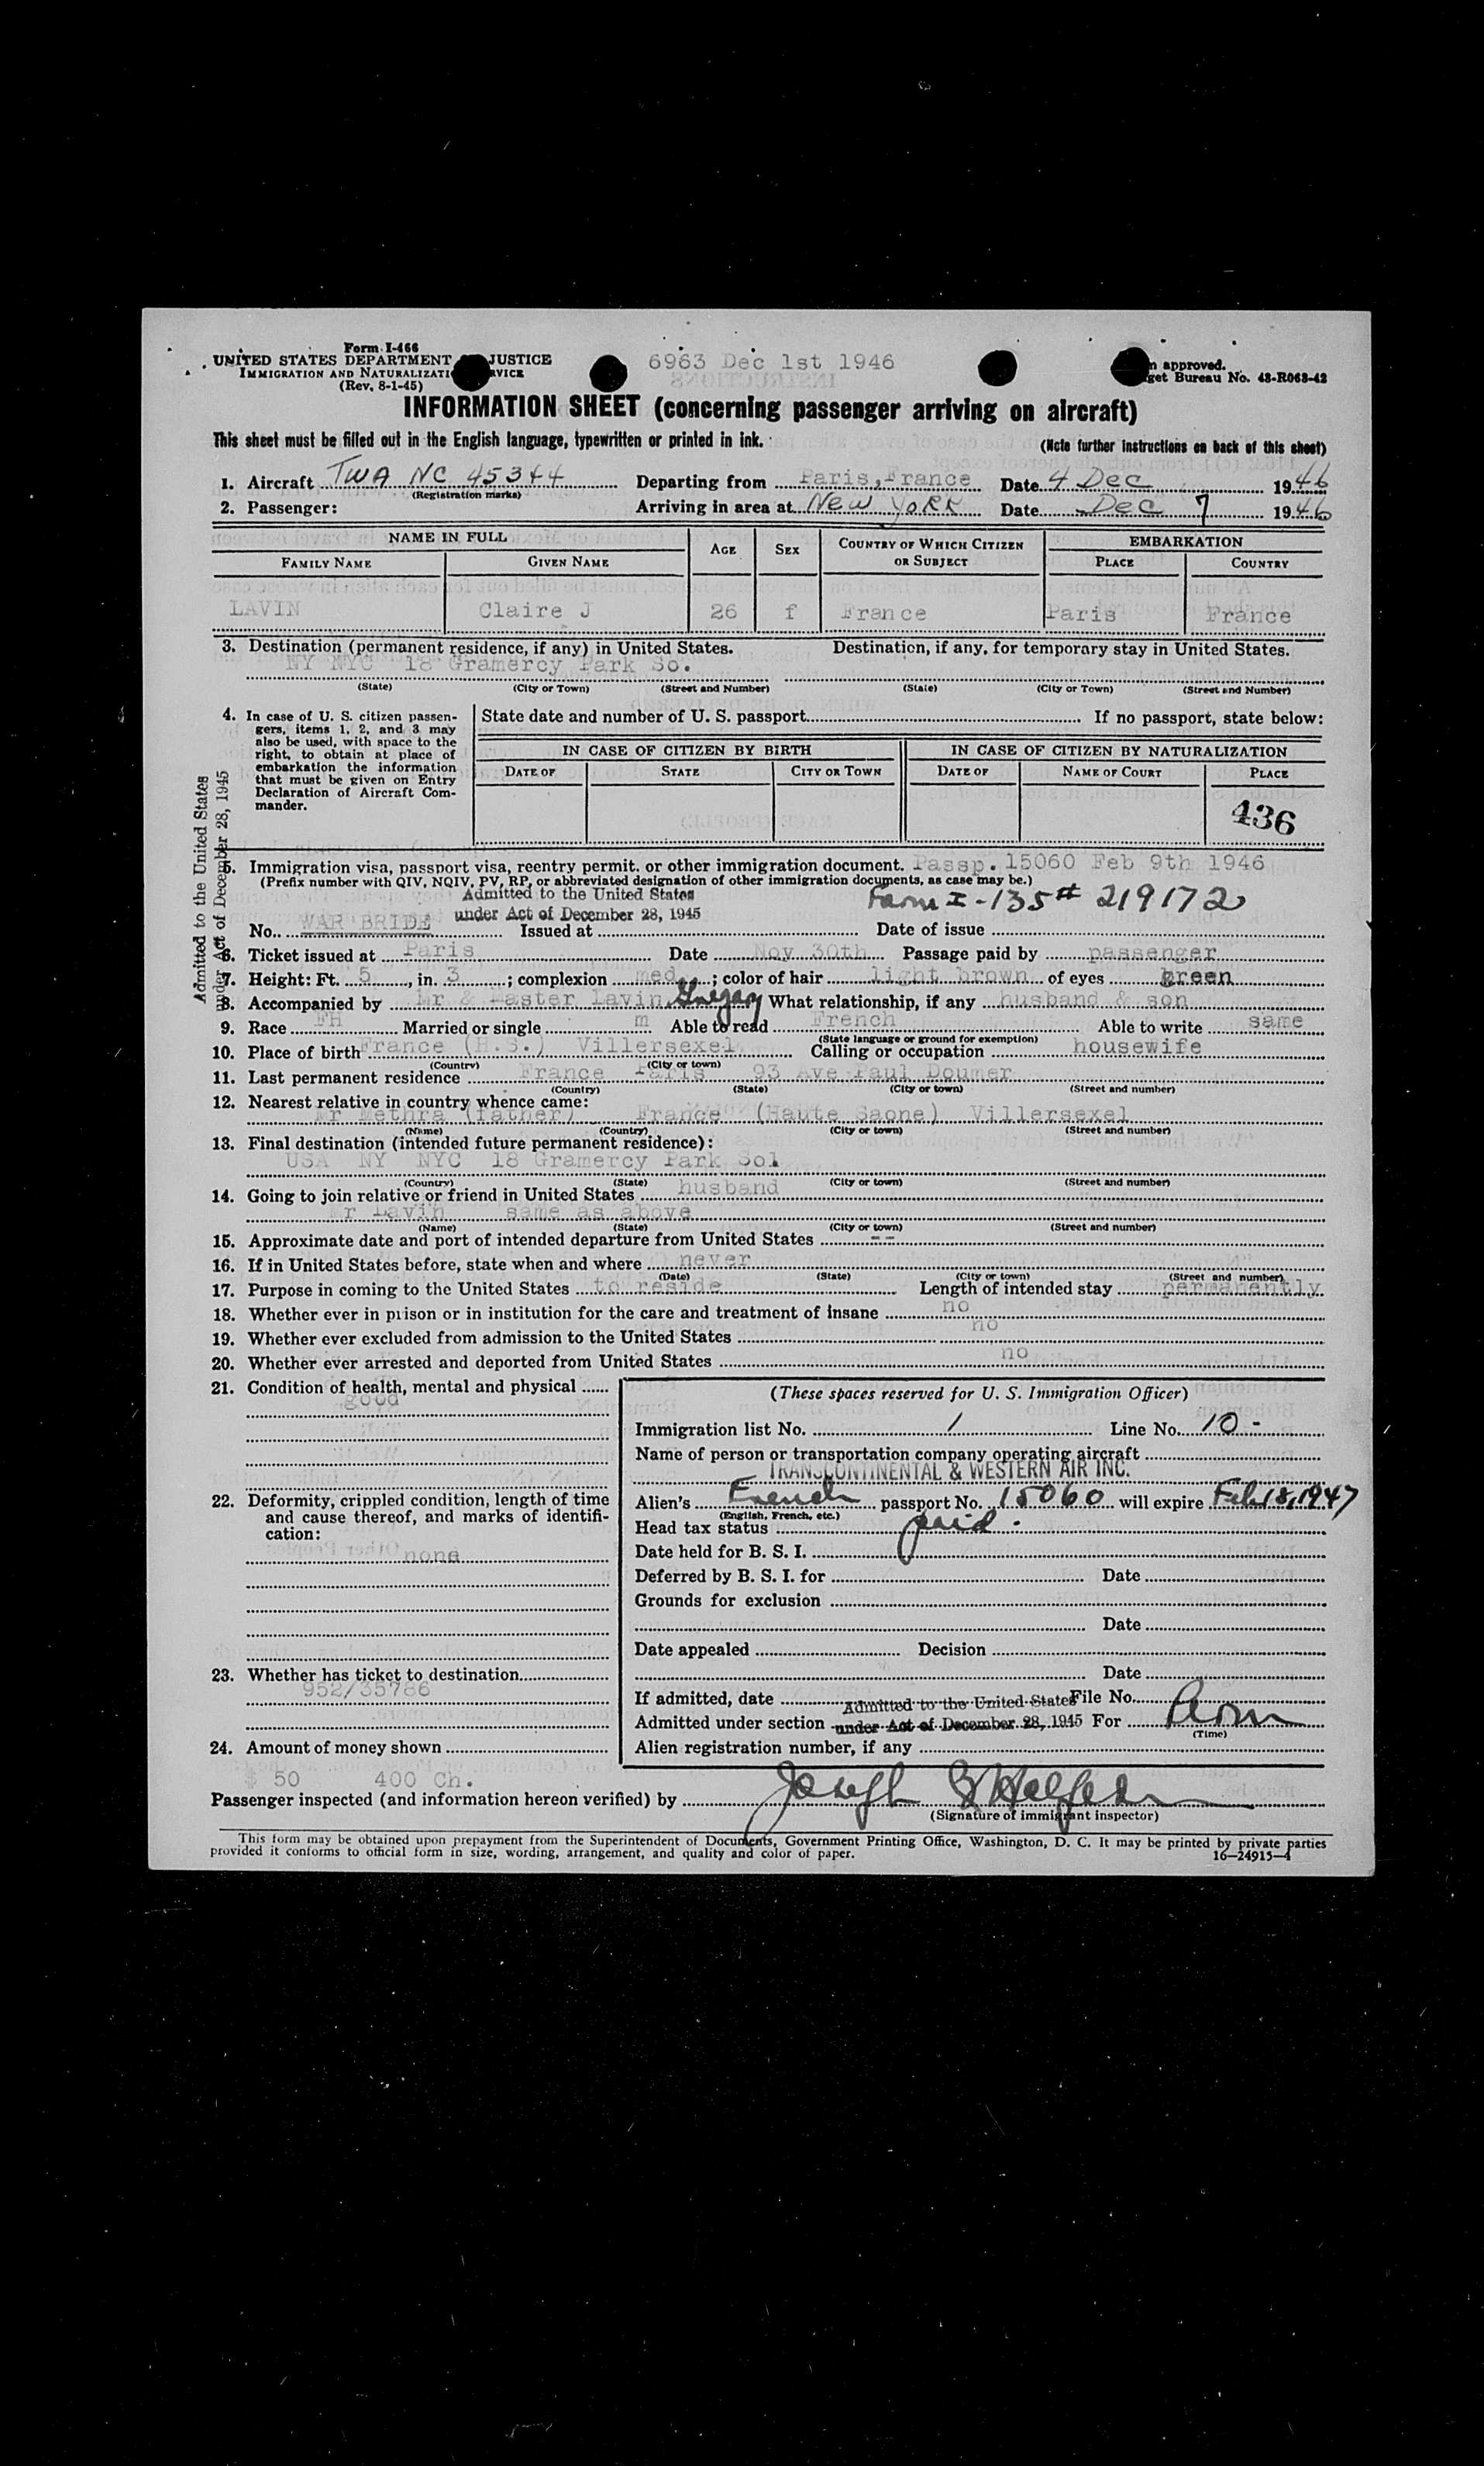 Form I-466
UNITED STATES DEPARTMENT JUSTICE
IMMIGRATION AND NATURALIZATI RVICE
(Rev. 8-1-45)
6963 Dec 1st 1946
n approved.
get Bureau No. 43-R063-42
INFORMATION SHEET (concerning passenger arriving on aircraft)
This sheet must be filled out in the English language, typewritten or printed in ink.
(Note further instructions on back of this sheet)
1. Aircraft TWA NC 45344 Departing from Paris, France Date 4 Dec 1946
(Registration marks)
2. Passenger: Arriving in area at New York Date Dec 7 1946
NAME IN FULL AGE SEX COUNTRY OF WHICH CITIZEN OR SUBJECT EMBARKATION
FAMILY NAME GIVEN NAME PLACE COUNTRY
LAVIN Claire J 26 f France Paris France
3. Destination (permanent residence, if any) in United States. Destination, if any, for temporary stay in United States.
NY NYC 18 Gramercy Park So.
(State) (City or Town) (Street and Number) (State) (City or Town) (Street and Number)
4. In case of U. S. citizen passen-
gers, items 1, 2, and 3 may
also be used, with space to the
right, to obtain at place of
embarkation the information
that must be given on Entry
Declaration of Aircraft Com-
mander.
State date and number of U. S. passport If no passport, state below:
IN CASE OF CITIZEN BY BIRTH IN CASE OF CITIZEN BY NATURALIZATION
DATE OF STATE CITY OR TOWN DATE OF NAME OF COURT PLACE
436
Admitted to the United States
under Act of December 28, 1945
5. Immigration visa, passport visa, reentry permit, or other immigration document. Passp. 15060 Feb 9th 1946
(Prefix number with QIV, NQIV, PV, RP, or abbreviated designation of other immigration documents, as case may be.)
Admitted to the United States
under Act of December 28, 1945
Form I-135 # 219172
No. WAR BRIDE Issued at Date of issue
6. Ticket issued at Paris Date Nov 30th Passage paid by passenger
7. Height: Ft. 5, in. 3; complexion med; color of hair light brown of eyes green
8. Accompanied by Mr & Master Lavin, What relationship, if any husband & son
9. Race FH Married or single m Able to read French Able to write same
(State language or ground for exemption)
10. Place of birth France (H.S.) Villersexel Calling or occupation housewife
(Country) (City or town)
11. Last permanent residence France Paris 93 Ave Paul Doumer
(Country) (State) (City or town) (Street and number)
12. Nearest relative in country whence came:
Mr Methra (father) France (Haute Saone) Villersexel
(Name) (Country) (City or town) (Street and number)
13. Final destination (intended future permanent residence):
USA NY NYC 18 Gramercy Park Sol
(Country) (State) (City or town) (Street and number)
14. Going to join relative or friend in United States husband
Mr Lavin same as above
(Name) (State) (City or town) (Street and number)
15. Approximate date and port of intended departure from United States --
16. If in United States before, state when and where never
(Date) (State) (City or town) (Street and number)
17. Purpose in coming to the United States to reside Length of intended stay permanently
18. Whether ever in prison or in institution for the care and treatment of insane no
19. Whether ever excluded from admission to the United States no
20. Whether ever arrested and deported from United States no
21. Condition of health, mental and physical
good
22. Deformity, crippled condition, length of time
and cause thereof, and marks of identifi-
cation:
none
23. Whether has ticket to destination
952/35786
24. Amount of money shown
$ 50 400 Ch.
(These spaces reserved for U. S. Immigration Officer)
Immigration list No. 1 Line No. 10 -
Name of person or transportation company operating aircraft
TRANSCONTINENTAL & WESTERN AIR INC.
Alien's French passport No. 15060 will expire Feb 18, 1947
(English, French, etc.)
Head tax status paid.
Date held for B. S. I.
Deferred by B. S. I. for Date
Grounds for exclusion
Date
Date appealed Decision
Date
If admitted, date Admitted to the United States File No.
Admitted under section under Act of December 28, 1945 For
(Time)
Alien registration number, if any
Passenger inspected (and information hereon verified) by Joseph
(Signature of immigrant inspector)
This form may be obtained upon prepayment from the Superintendent of Documents, Government Printing Office, Washington, D. C. It may be printed by private parties
provided it conforms to official form in size, wording, arrangement, and quality and color of paper.
16—24915-4